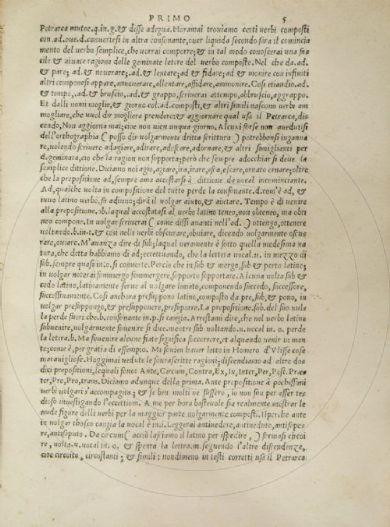 PRIMO 5
Petrarca mutoe, q. in. g. & disse adegua. Horamai trouiamo certi uerbi composti
con .ad. oue .d. conuertesi in altra consonante, ouer liquida secondo sira il comincia
mento del uerbo semplice, che uorrai comporre; & in tal modo conoscerai una fa
cile & aiuuce ragione delle geminate lettere del uerbo composto. Nel che da .ad.
& pare; ad. & nouerare; .ad. & lentare; ad & fidare; ad & monire con infiniti
altri componesi appare, annouerare, allentare, affidare, ammonire. Cosi etiandio .ad.
& tempo, .ad. & bruscio, .ad. & grappo, scriuerai attempo, abbruscio, aggrappo.
Et dalli nomi moglie, & giorno col .ad. composti, & altri simili nascono uerbi am
mogliare, che uuol dir mogliera prendere, & aggiornare qual usa il Petrarca, di
cendo, Non aggiorna mai; che non uien unqua giorno. Alcuni forse non aueduti
dell'orthographia (posso dir uolgarmente dritta scrittura) potrebbonsi inganna
re, uolendo scriuere adagiare, adirare, adescare, adornare, & altri somiglienti per
.d. geminata,
semplice dittione. Diciamo noi agio, agiare, ira, irare, esca, escare, ornato ornare;
che la preposition ad, sempre ama accostarsi à dittione de uocal incominciante.
Ad, qualche uolta in compositione del tutto perde la consonante .d. com'è ad, &
iuuo latino uerbo, fo adiuuo; dirà il uolgar aiuto, & aiutare. Tempo è di uenire
alla prepositione .ob. laqual accostatasi al uerbo latino teneo, uuol obteneo, ma obti
neo compone. In uolgar scriuerai (come dissi auanti nell'ad.) ottengo, ottenere
uoltando .b. in .t. & così nelli uerbi obscurare, obuiare, dicendo uolgarmente oscu
rare, ouiare. M'auanza dire di sub, laqual ueramente è sotto quella medesima na
tura, che detta habbiamo di ad; eccettuando, che la lettera uocal .u. in mezzo di
sub, sempre quasi in .o. si conuerte. Perciò che in sub & mergo, sub & porto latine;
in uolgar notarai sommergo sommergere, sopporto sopportare. Alcuna uolta sub &
cedo latino, latinamente serue al uolgare innato, componendo succedo, succedere,
successiuamente. Così anchora presuppono latino, composto da pre, sub, & pono, in
uolgar presuppongo, & presupponere, presupporre. La prepositione .sub. del suo nulla
la perde suor che .b. consonante in .p. si cangia. A restami dire, che nel uerbo latino
subuenire, uolgarmente souenire si dice. mostri sub uoltando .u. uocal in .o. perde
la lettera .b. Ma souenire alcune fiate significa soccorrere, et alquando uenir in men
te; come è, per gratia di essempio. Mi souien hauer letto in Homero d'Vlisse cose
marauigliose. Hoggimai uedute le sourascritte ragioni; discendiamo ad altre do
dici prepositioni, lequali sono: Ante, Circum, Contra, Ex, In, Inter, Per, Post. Præ
ter, Pro, Pro, trans. Diciamo adunque della prima. Ante prepositione à pochissimi
uerbi uolgari s'accompagna; & se ben molti ne fussero, io non sia per esser tre
dioso inuestigando l'eccettioni. A me per hora basteuole sia realmente mostrar le
nude figure delli uerbi per la maggior parte uolgarmente composti. Il perche ante
in uolgar thosco cangia la uocal è in .i. Leggerai antiuedere, antiueduto, antisape
re, antisaputo. De circum (acciò lasciamo il latino per ispedire,) formasi circoi
re, uolta .u. uocal in .o. & spenta la lettra .m. seguendo l'altre distendenza,
come circoito, circostanti; & simili: nondimeno in testi corretti usa il Petrarca